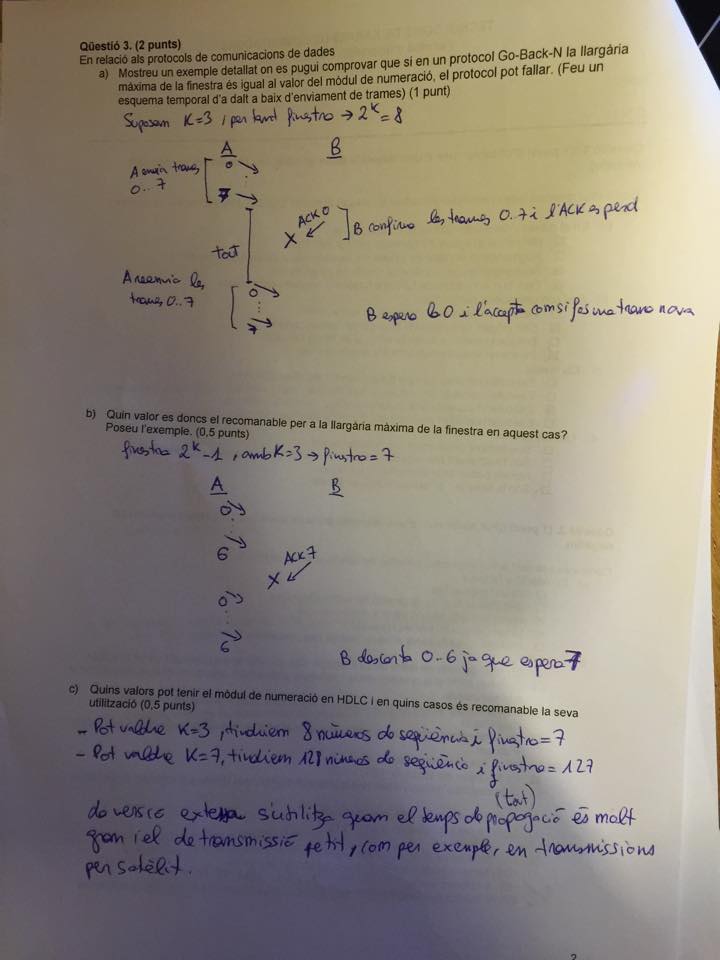 Qüestió 3. (2 punts)
En relació als protocols de comunicacions de dades
a) Mostreu un exemple detallat on es pugui comprovar que si en un protocol Go-Back-N la llargària
màxima de la finestra és igual al valor del mòdul de numeració, el protocol pot fallar. (Feu un
esquema temporal d'a dalt a baix d'enviament de trames) (1 punt)
Suposem K=3, i per tant finestra → 2^K = 8
A B
A envia trames
0..7
0
7
ACK 0
X
B confirma les trames 0..7 i l'ACK es perd
tout
A reenvia les
trames 0..7
0
7
B espera la 0 i l'accepta com si fos una trama nova
b) Quin valor es doncs el recomanable per a la llargària màxima de la finestra en aquest cas?
Poseu l'exemple. (0,5 punts)
finestra 2^K-1, amb K=3 → finestra = 7
A B
0
6
ACK 7
X
0
6
B descarta 0..6 ja que espera 7
c) Quins valors pot tenir el mòdul de numeració en HDLC i en quins casos és recomanable la seva
utilització (0,5 punts)
- Pot valdre K=3, tindriem 8 números de seqüència i finestra = 7
- Pot valdre K=7, tindriem 128 números de seqüència i finestra = 127
(tout)
la versió extesa s'utilitza quan el temps de propogació és molt
gran i el de transmissió petit, com per exemple, en transmissions
per satèl·lit.
2